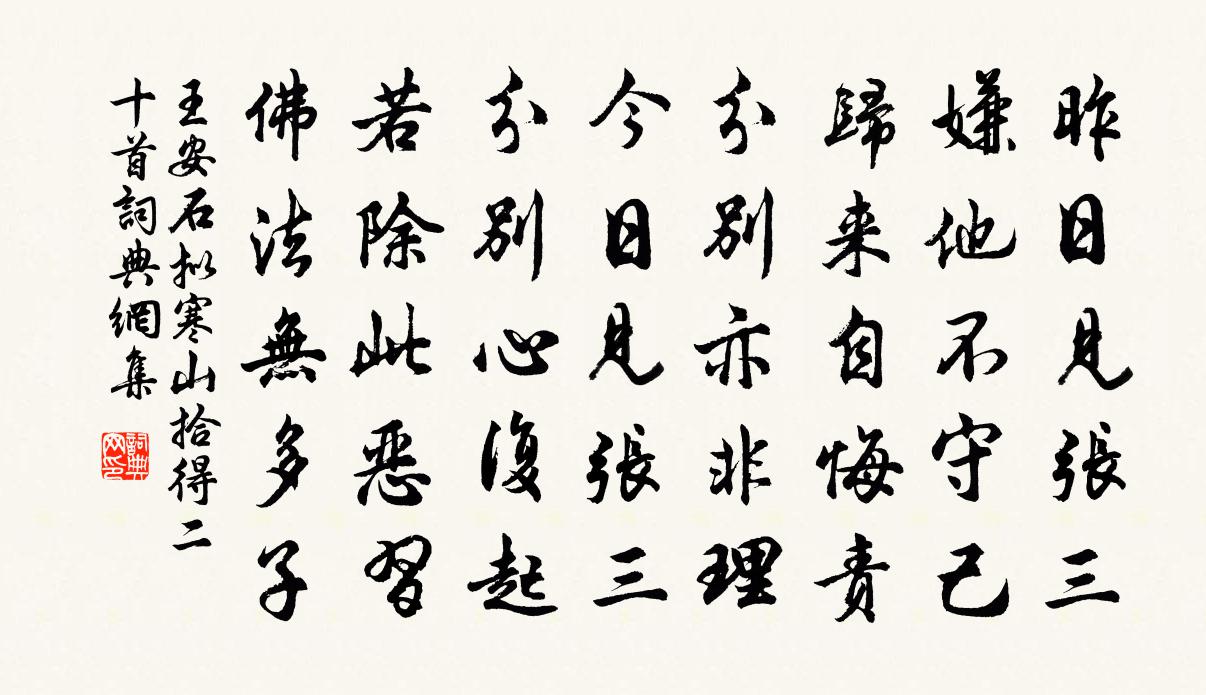 昨日見張三
嫌他不守己
歸来自悔責
分別亦非理
今日見張三
分別心復起
若除此惡習
佛法無多子
王安石拟寒山拾得二
十首詞典網集
詞典網印